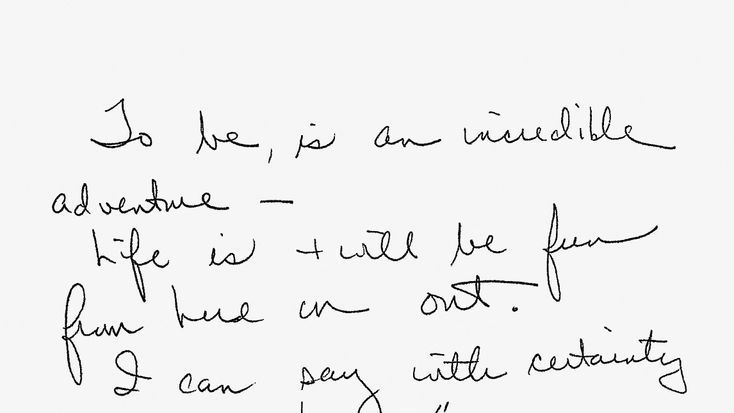 To be, is an incredible
adventure —
Life is + will be fun
from here on out.
I can say with certainty